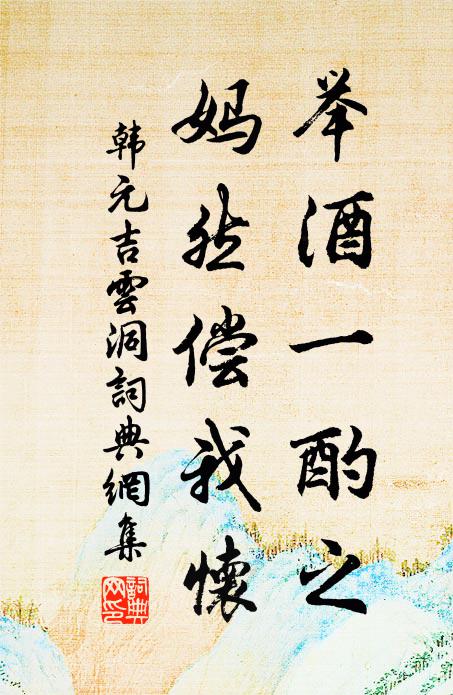 举酒一酌之
妈然偿我懷
韩元吉雲洞詞典網集
詞典网印